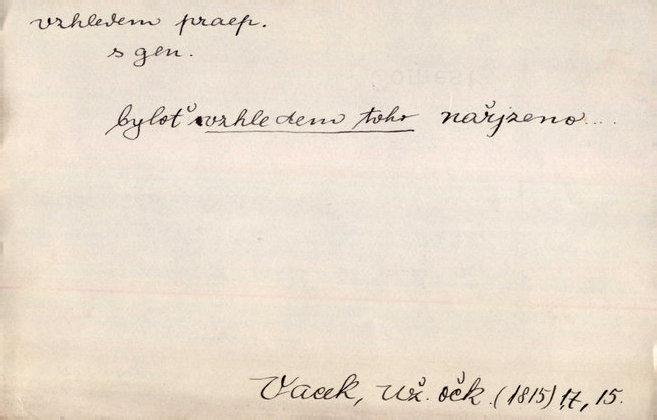 vzhledem praep.
s gen.
byloť vzhledem toho nařjzeno...
Vacek, Už. očk. (1815) 17, 15.